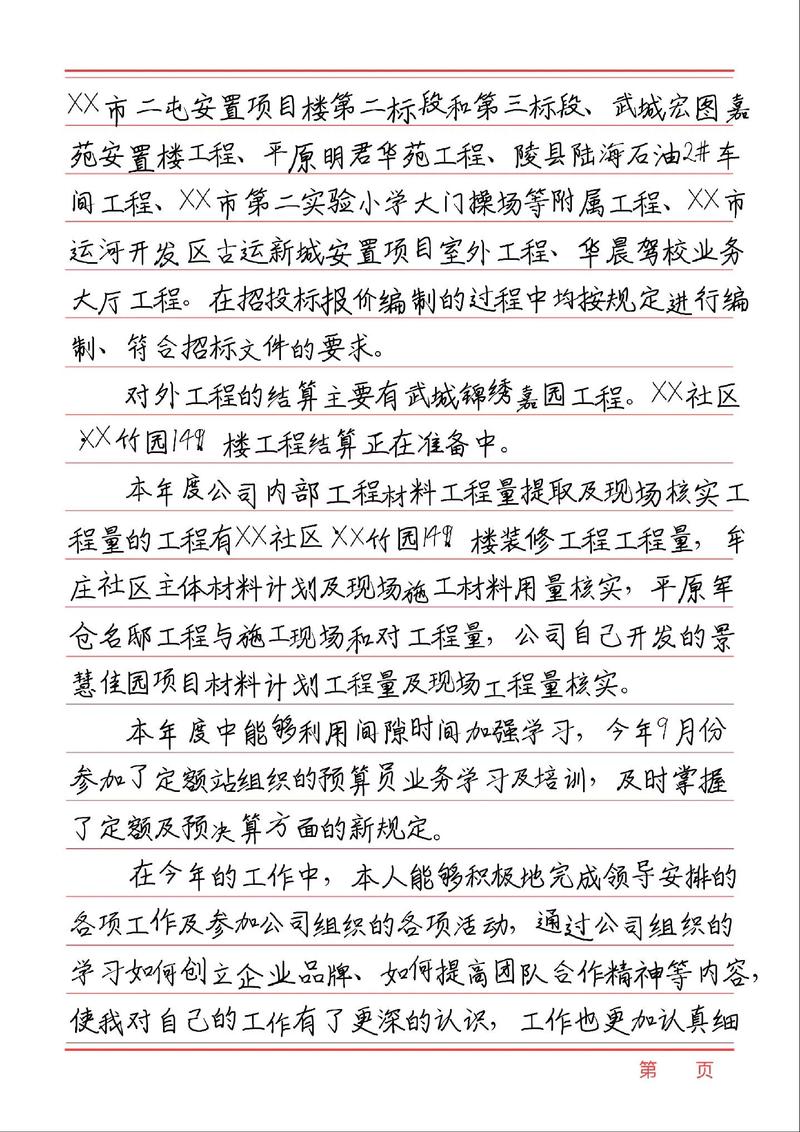 XX市二屯安置项目楼第二标段和第三标段、武城宏图嘉
苑安置楼工程、平原明君华苑工程、陵县陆海石油2#车
间工程、XX市第二实验小学大门操场等附属工程、XX市
运河开发区古运新城安置项目室外工程、华晨驾校业务
大厅工程。在招投标报价编制的过程中均按规定进行编
制、符合招标文件的要求。
对外工程的结算主要有武城锦绣嘉园工程。XX社区
XX竹园 楼工程结算正在准备中。
本年度公司内部工程材料工程量提取及现场核实工
程量的工程有XX社区XX竹园 楼装修工程工程量，牟
庄社区主体材料计划及现场施工材料用量核实，平原军
仓名邸工程与施工现场和对工程量，公司自己开发的景
慧佳园项目材料计划工程量及现场工程量核实。
本年度中能够利用间隙时间加强学习，今年9月份
参加了定额站组织的预算员业务学习及培训，及时掌握
了定额及预决算方面的新规定。
在今年的工作中，本人能够积极地完成领导安排的
各项工作及参加公司组织的各项活动，通过公司组织的
学习如何创立企业品牌、如何提高团队合作精神等内容，
使我对自己的工作有了更深的认识，工作也更加认真细
第 页